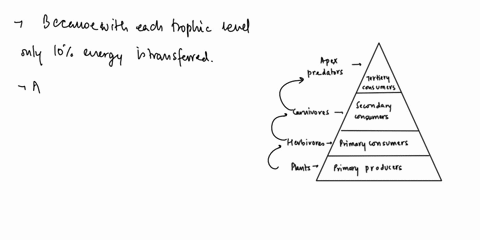 → Because with each trophic level
only 10% energy is transferred.
→ A
Apex
predators →
Tertiary
consumers
Carnivores →
Secondary
consumers
Herbivores →
Primary consumers
Plants →
Primary producers